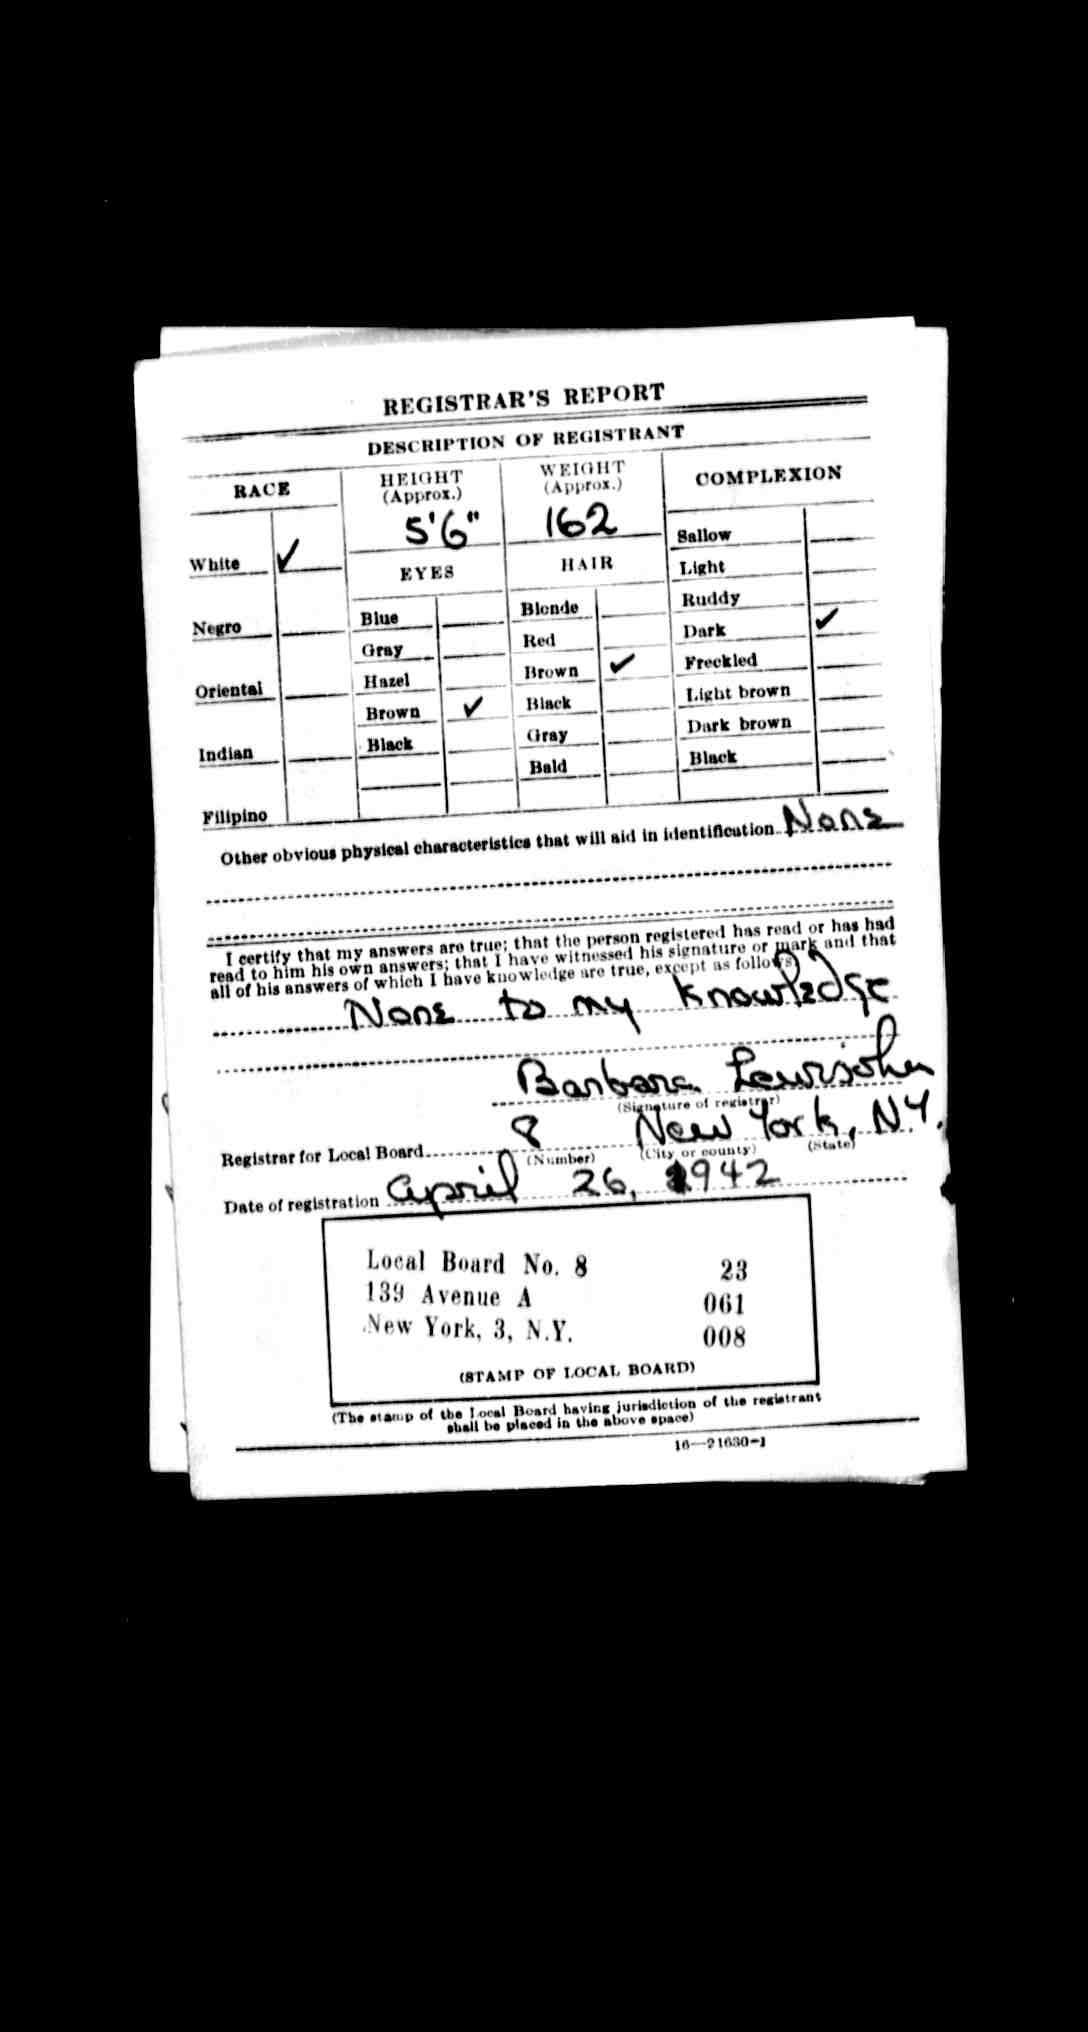 REGISTRAR'S REPORT
DESCRIPTION OF REGISTRANT
RACE
White ✓
Negro
Oriental
Indian
Filipino
HEIGHT
(Approx.)
5'6"
EYES
Blue
Gray
Hazel
Brown ✓
Black
WEIGHT
(Approx.)
162
HAIR
Blonde
Red
Brown ✓
Black
Gray
Bald
COMPLEXION
Sallow
Light
Ruddy
Dark ✓
Freckled
Light brown
Dark brown
Black
Other obvious physical characteristics that will aid in identification None
I certify that my answers are true; that the person registered has read or has had
read to him his own answers; that I have witnessed his signature or mark and that
all of his answers of which I have knowledge are true, except as follows:
None to my knowledge
Barbara Lewisohn
(Signature of registrar)
Registrar for Local Board 8 New York, N.Y.
(Number) (City or county) (State)
Date of registration April 26, 1942
Local Board No. 8 23
139 Avenue A 061
New York, 3, N.Y. 008
(STAMP OF LOCAL BOARD)
(The stamp of the Local Board having jurisdiction of the registrant
shall be placed in the above space)
16—21630-1